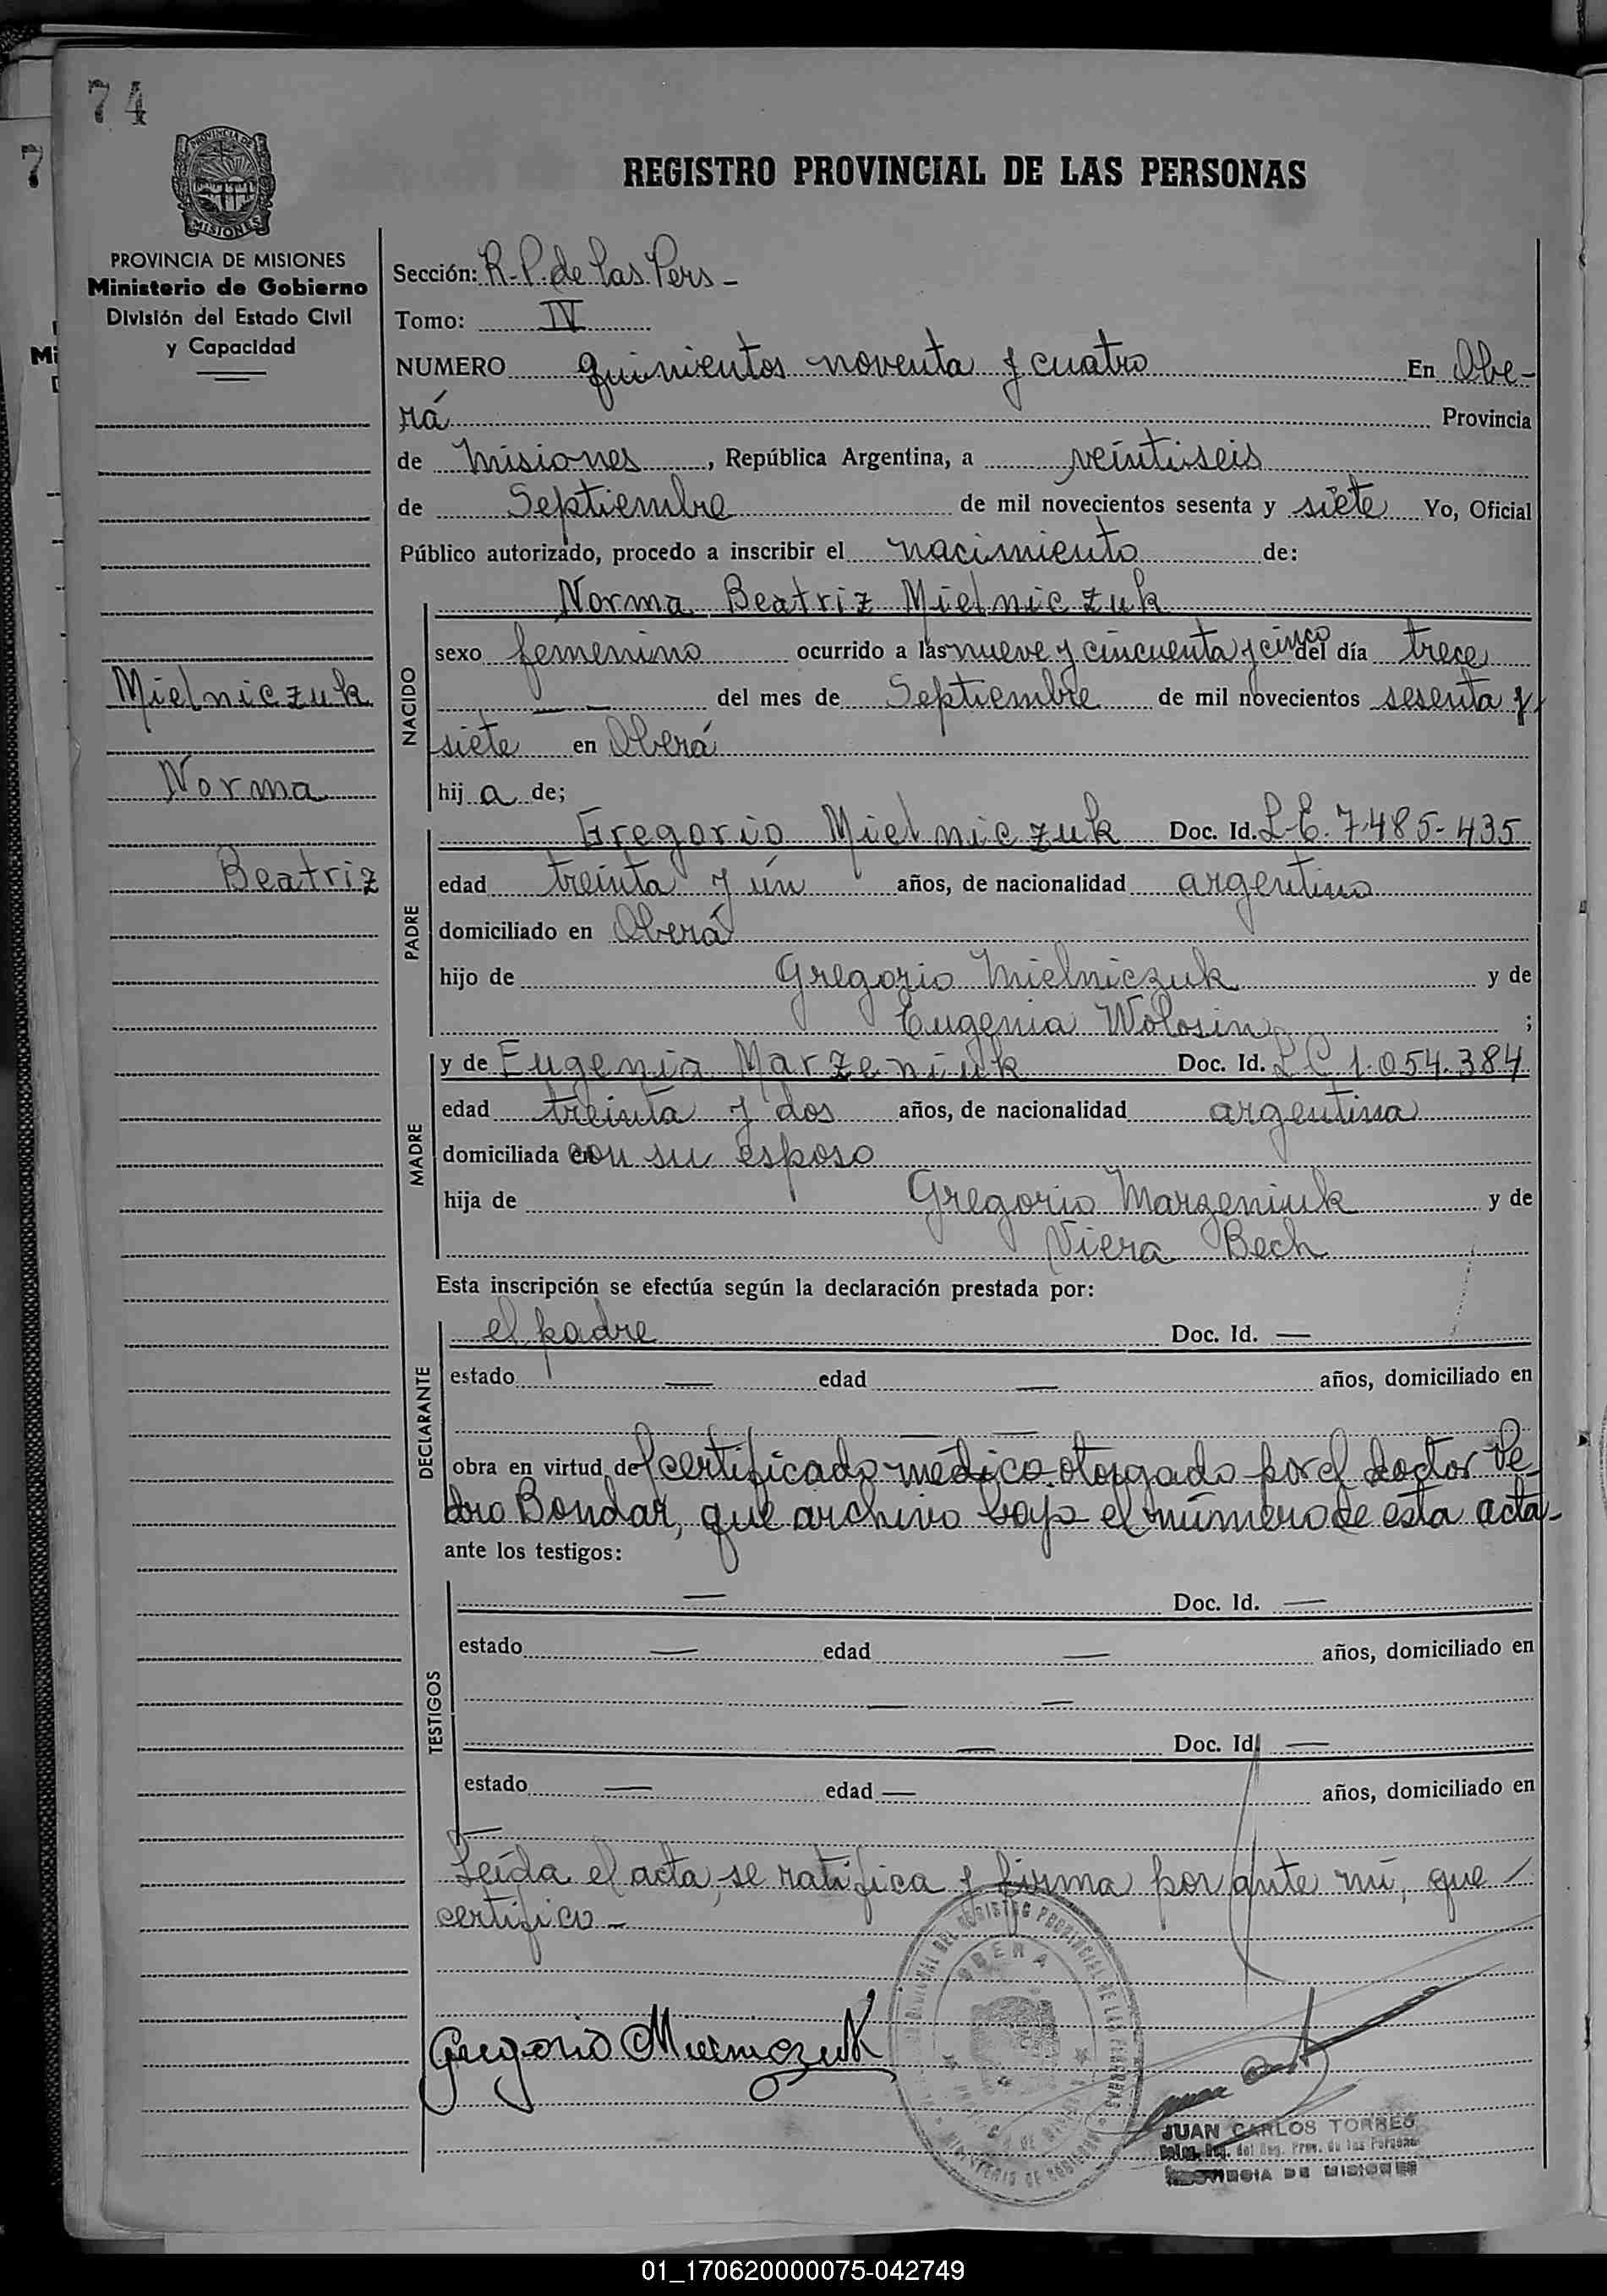 74
7
PROVINCIA DE
MISIONES
REGISTRO PROVINCIAL DE LAS PERSONAS
PROVINCIA DE MISIONES
Ministerio de Gobierno
División del Estado Civil
y Capacidad
Sección: R. P. de las Pers -
Tomo: IV
NUMERO quinientos noventa y cuatro En Obe-
rá Provincia
de Misiones, República Argentina, a veintiseis
de Septiembre de mil novecientos sesenta y siete Yo, Oficial
Público autorizado, procedo a inscribir el nacimiento de:
Norma Beatriz Mielniczuk
NACIDO
sexo femenino ocurrido a las nueve y cincuenta y cinco del día trece
— — del mes de Septiembre de mil novecientos sesenta y
siete en Oberá
hija de;
Mielniczuk
Norma
Beatriz
PADRE
Gregorio Mielniczuk Doc. Id. L.E. 7.485.435
edad treinta y ún años, de nacionalidad argentino
domiciliado en Oberá
hijo de Gregorio Mielniczuk y de
Eugenia Wolosin ;
MADRE
y de Eugenia Marzeniuk Doc. Id. L C 1.054.384
edad treinta y dos años, de nacionalidad argentina
domiciliada con su esposo
hija de Gregorio Marzeniuk y de
Viera Bech
Esta inscripción se efectúa según la declaración prestada por:
DECLARANTE
el padre Doc. Id. —
estado — edad — años, domiciliado en
— —
obra en virtud del certificado médico otorgado por el doctor Pe-
dro Bondar, que archivo bajo el número de esta acta-
ante los testigos:
TESTIGOS
— Doc. Id. —
estado — edad — años, domiciliado en
— —
— Doc. Id. —
estado — edad — años, domiciliado en
—
Leída el acta, se ratifica y firma por ante mí, que
certifico -
OBERA
Gregorio Mielniczuk
JUAN CARLOS TORRES
del Reg. Prov. de las Personas
PROVINCIA DE MISIONES
01_170620000075-042749